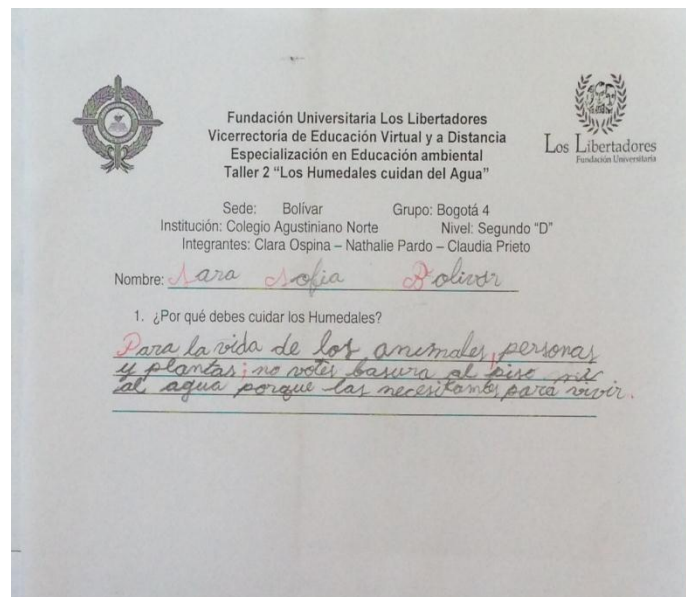 Fundación Universitaria Los Libertadores
Vicerrectoría de Educación Virtual y a Distancia
Especialización en Educación ambiental
Taller 2 “Los Humedales cuidan del Agua”
Los Libertadores
Fundación Universitaria
Sede: Bolívar Grupo: Bogotá 4
Institución: Colegio Agustiniano Norte Nivel: Segundo “D”
Integrantes: Clara Ospina – Nathalie Pardo – Claudia Prieto
Nombre: Sara Sofia Bolivar
1. ¿Por qué debes cuidar los Humedales?
Para la vida de los animales, personas
y plantas; no votes basura al piso ni
al agua porque las necesitamos para vivir.